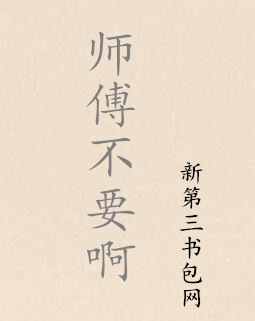 师傅不要啊
新第三书包网